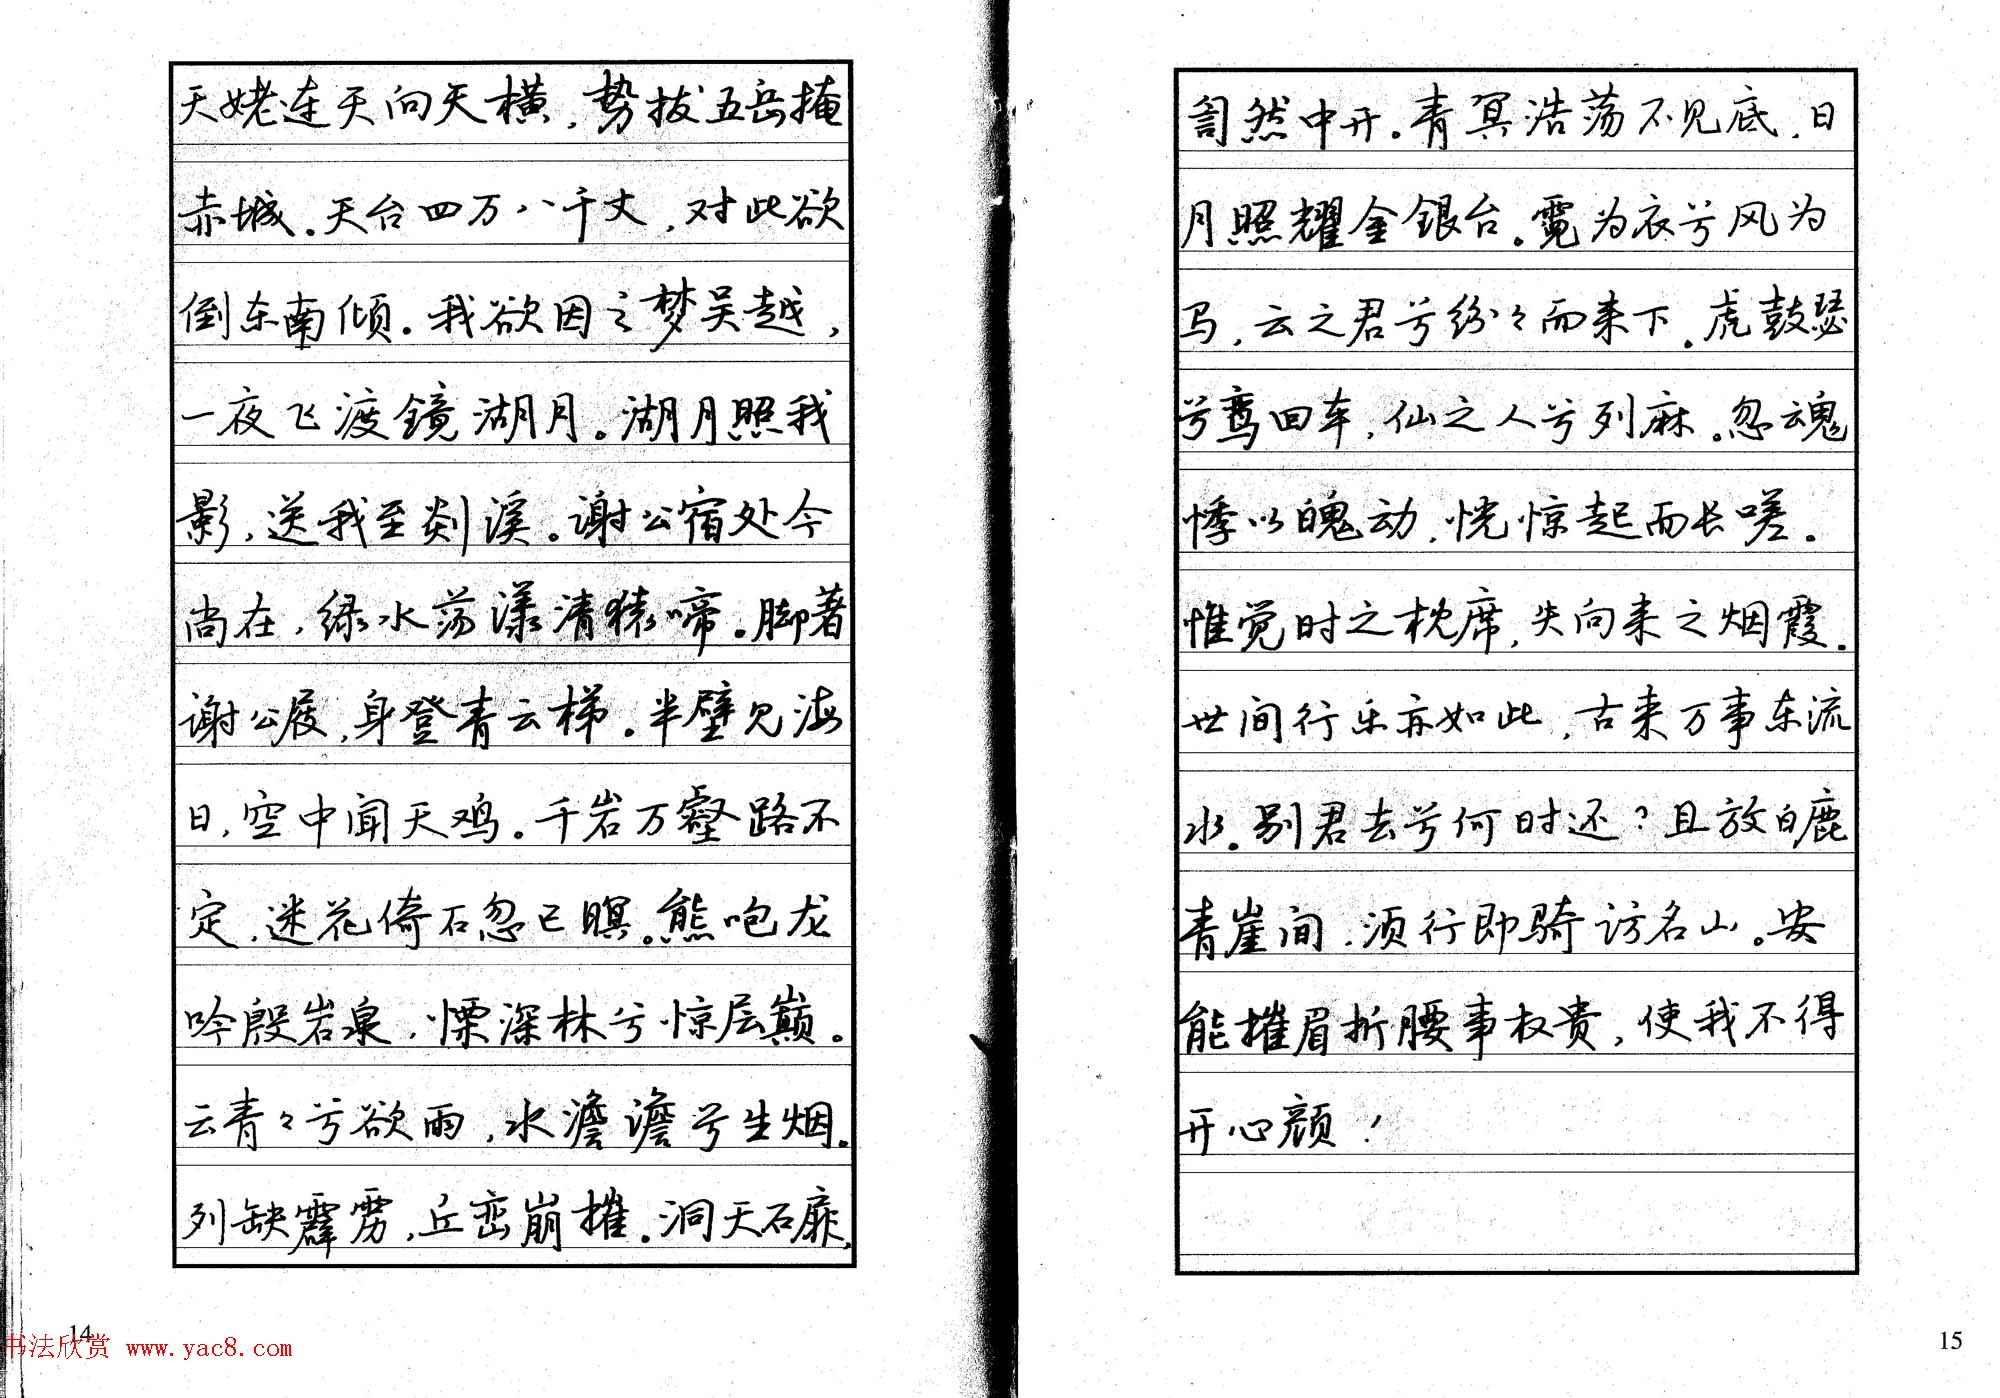 天姥连天向天横，势拔五岳掩
赤城。天台四万八千丈，对此欲
倒东南倾。我欲因之梦吴越，
一夜飞渡镜湖月。湖月照我
影，送我至剡溪。谢公宿处今
尚在，绿水荡漾清猿啼。脚著
谢公屐，身登青云梯。半壁见海
日，空中闻天鸡。千岩万壑路不
定，迷花倚石忽已暝。熊咆龙
吟殷岩泉，慄深林兮惊层巅。
云青々兮欲雨，水澹澹兮生烟。
列缺霹雳，丘峦崩摧。洞天石扉，
14
訇然中开。青冥浩荡不见底，日
月照耀金银台。霓为衣兮风为
马，云之君兮纷々而来下。虎鼓瑟
兮鸾回车，仙之人兮列麻。忽魂
悸以魄动，恍惊起而长嗟。
惟觉时之枕席，失向来之烟霞。
世间行乐亦如此，古来万事东流
水。别君去兮何时还？且放白鹿
青崖间，须行即骑访名山。安
能摧眉折腰事权贵，使我不得
开心颜！
15
书法欣赏 www.yac8.com